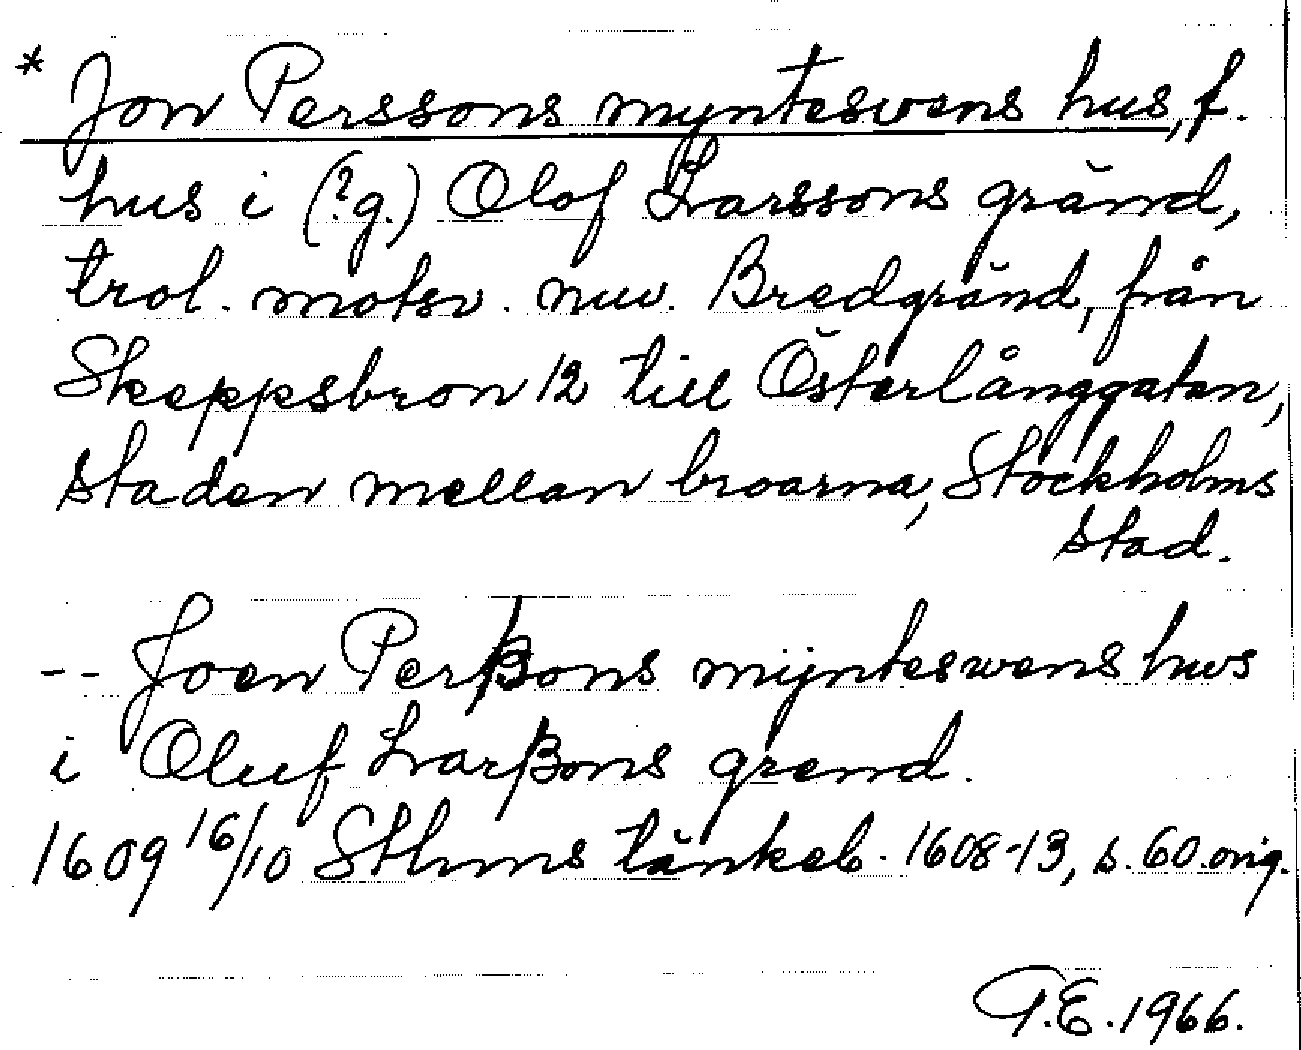 * Jon Perssons myntesvens hus, f.
hus i (?g.) Olof Larssons gränd,
trol. motsv. nuv. Bredgränd, från
Skeppsbron 12 till Österlånggatan,
staden mellan broarna, Stockholms
stad.
-- Joen Perßons mÿnteswens hws
i Oluf Larßons grend.
1609 16/10 Sthms tänkeb. 1608-13, s. 60. orig.
G.E. 1966.